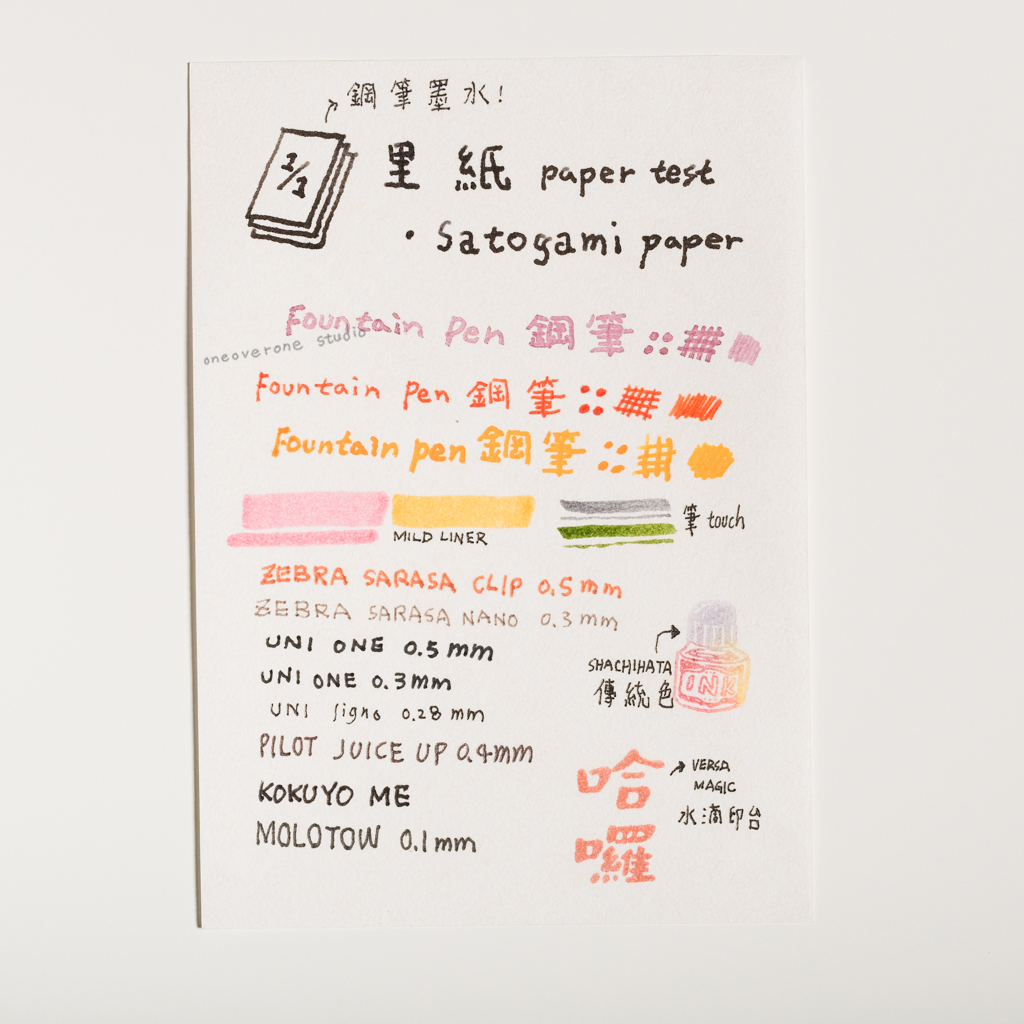 鋼筆墨水!
1/1
里紙 paper test
・Satogami paper
Fountain Pen 鋼筆
oneoverone studio
Fountain Pen 鋼筆
Fountain pen 鋼筆
MILD LINER
筆touch
ZEBRA SARASA CLIP 0.5mm
ZEBRA SARASA NANO 0.3mm
UNI ONE 0.5mm
UNI ONE 0.3mm
UNI Signo 0.28mm
PILOT JUICE UP 0.4mm
KOKUYO ME
MOLOTOW 0.1mm
SHACHIHATA
傳統色
INK
哈囉
VERSA
MAGIC
水滴印台